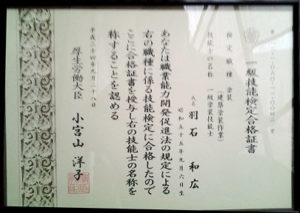 一級技能検定合格証書
検定職種 塗装
(建築塗装作業)
技能士の名称 一級塗装技能士
氏名 羽石 和広
昭和五十五年九月六日生
あなたは職業能力開発促進法の規定による
右の職種に係る技能検定に合格したので
ここに合格証書を授与し右の技能士の名称を
称することを認める
平成二十四年九月二十八日
厚生労働大臣 小宮山 洋子